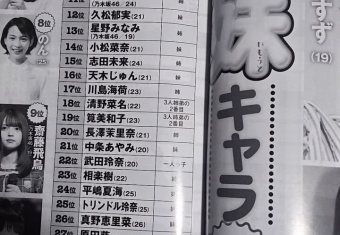 (乃木坂46/24)
12位 久松郁実(21) 妹
13位 星野みなみ(乃木坂46/19) 妹
14位 小松菜奈(21) 妹
15位 志田未来(24) 姉
16位 天木じゅん(21) 妹
17位 川島海荷(23) 姉
18位 清野菜名(22) 3人姉弟の2番目
19位 筧美和子(23) 3人姉弟の2番目
20位 長澤茉里奈(21) 姉
21位 中条あやみ(20) 妹
22位 武田玲奈(20) 一人っ子
23位 相楽樹(22) 姉
24位 平嶋夏海(25) 姉
25位 トリンドル玲奈(25) 姉
26位 真野恵里菜(26) 姉
27位
8位
9位
齋藤飛鳥
妹
いもうと
キャラ
すず
(19)